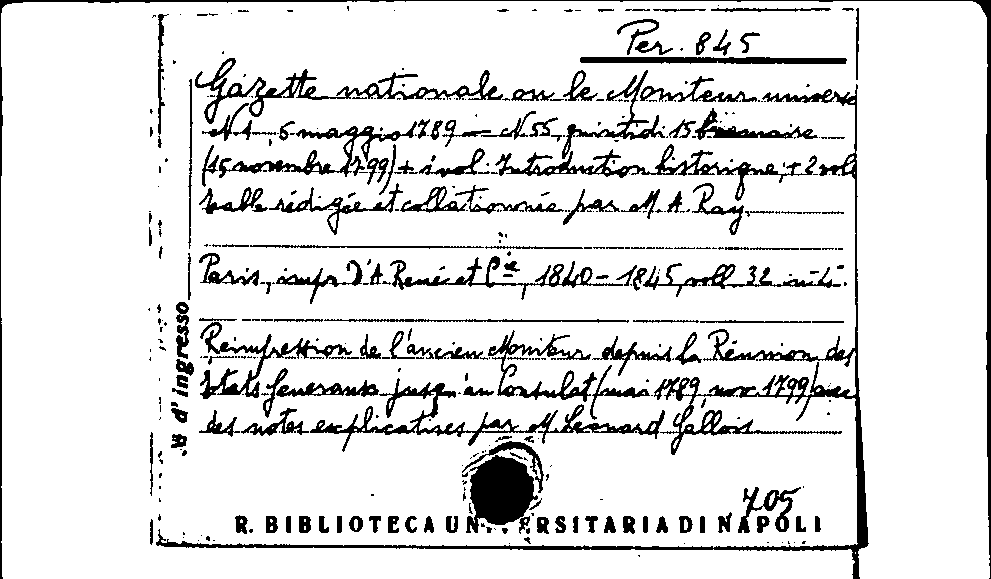 Per. 845
Gazette nationale ou le Moniteur univers
N. 1, 5 maggio 1789 — N. 55, quintidi 15 brumaire
(15 novembre 1799) + 1 vol. Introduction historique; + 2 voll
table rédigée et collationnée par M. A. Ray.
Paris, impr. D'A. René et Cie, 1840-1845, voll. 32 in-4°.
Reimpression de l'ancien Moniteur depuis la Réunion des
États Generaux jusqu'au Consulat (mai 1789, nov. 1799) avec
des notes explicatives par M. Léonard Gallois.
N. d'ingresso
705
R. BIBLIOTECA UNIVERSITARIA DI NAPOLI